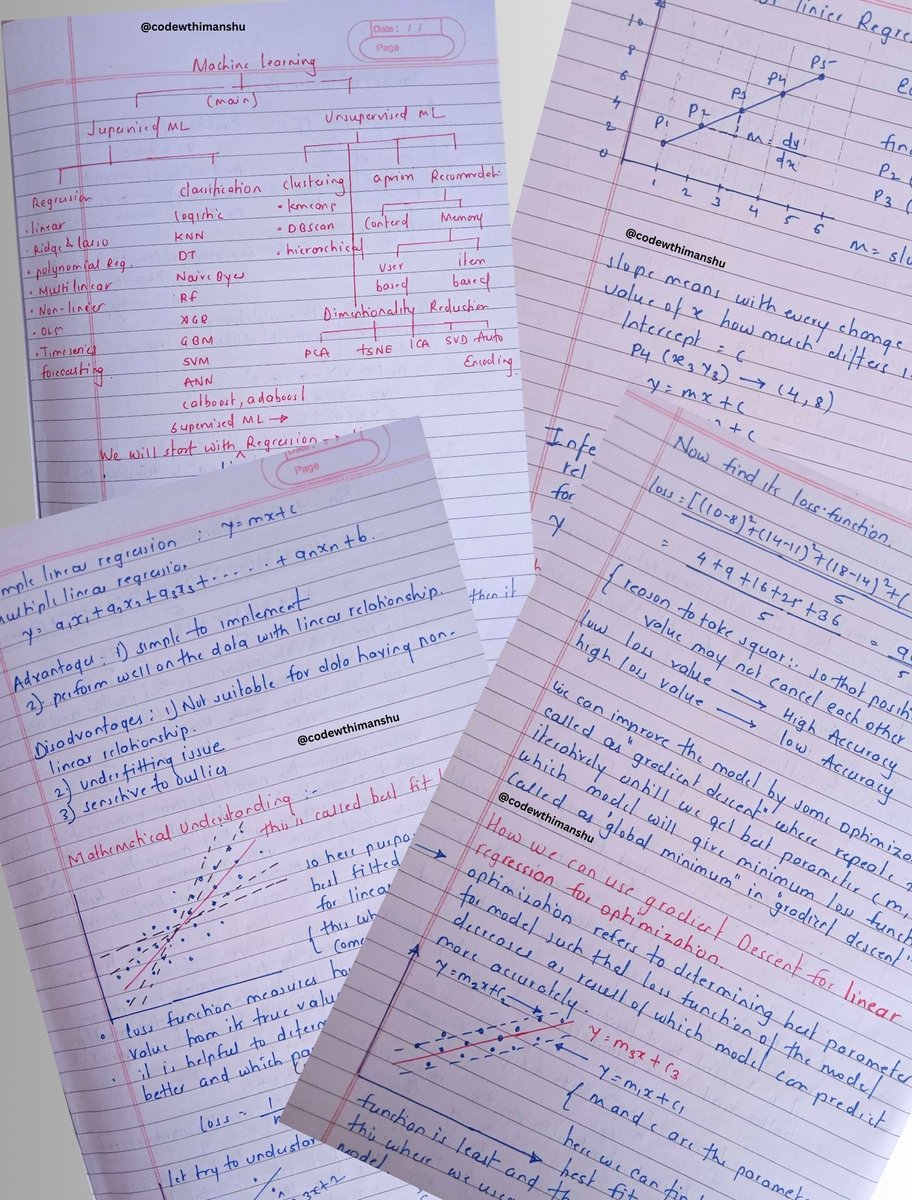 @codewthimanshu
Date : / /
Page
Machine learning
(main)
Supervised ML
Unsupervised ML
Regression
.linear
.Ridge & lasso
.polynomial Reg.
.Multilinear
.Non-linear
.OLS
.Timeseries
forecasting.
classification
logistic
KNN
DT
Naive Byes
Rf
XGB
GBM
SVM
ANN
catboost, adaboost
Supervised ML →
We will start with Regression
clustering
.kmeans
.DBscan
.hierarchical
apriori
Recommendati
Contend
Memory
User
based
item
based
Dimentionality Reduction
PCA
tSNE
ICA
SVD
Auto
Encoding.
linier Regre
10
8
6
4
2
0
P1
P2
P3
P4
P5
m = dy
dx
1 2 3 4 5 6
find
P2 (
P3 (
m = slo
@codewthimanshu
slope means with every change
value of x how much differs i
Intercept = c
P4 (x3 y3) → (4,8)
y = mx + c
+ c
Infe
rel
for
y
then it
Page
mple linear regression : y = mx+c
multiple linear regression
y = a1x1 + a2x2 + a3x3 + ...... + anxn + b.
Advantages : 1) simple to implement
2) perform well on the data with linear relationship.
Disadvantages : 1) Not suitable for data having non-
linear relationship.
2) underfitting issue
3) sensitive to outlier
@codewthimanshu
Mathematical Understanding :-
this is called best fit l
so here purpo
best fitted
for linea
{ this wh
(come
. loss function measures ho
value from its true valu
. it is helpful to determ
better and which pa
loss = 1
let try to understan
3x+2
Now find its loss-function.
loss = [(10-8)²+(14-11)²+(18-14)²+(
5
= 4+9+16+25+36
5
= 9
5
{ reason to take square: so that positi
value may not cancel each other
low loss value → High Accuracy
high loss value → low Accuracy
we can improve the model by some optimiza
called as "gradient descent" where repeats
iteratively untill we get best parameter (m,
which model will give minimum loss funct
called as "global minimum" in "gradient descent"
@codewthimanshu
How we can use gradient Descent for linear
regression for optimization.
→ optimization refers to determining best parameter
for model such that loss function of the model
decreases as result of which model can predict
more accurately.
y=m2x+c2
y = m3x + c3
y = m1x + c1
{ m and c are the paramete
here we can fin
function is least and th
best fit
this where we use
model